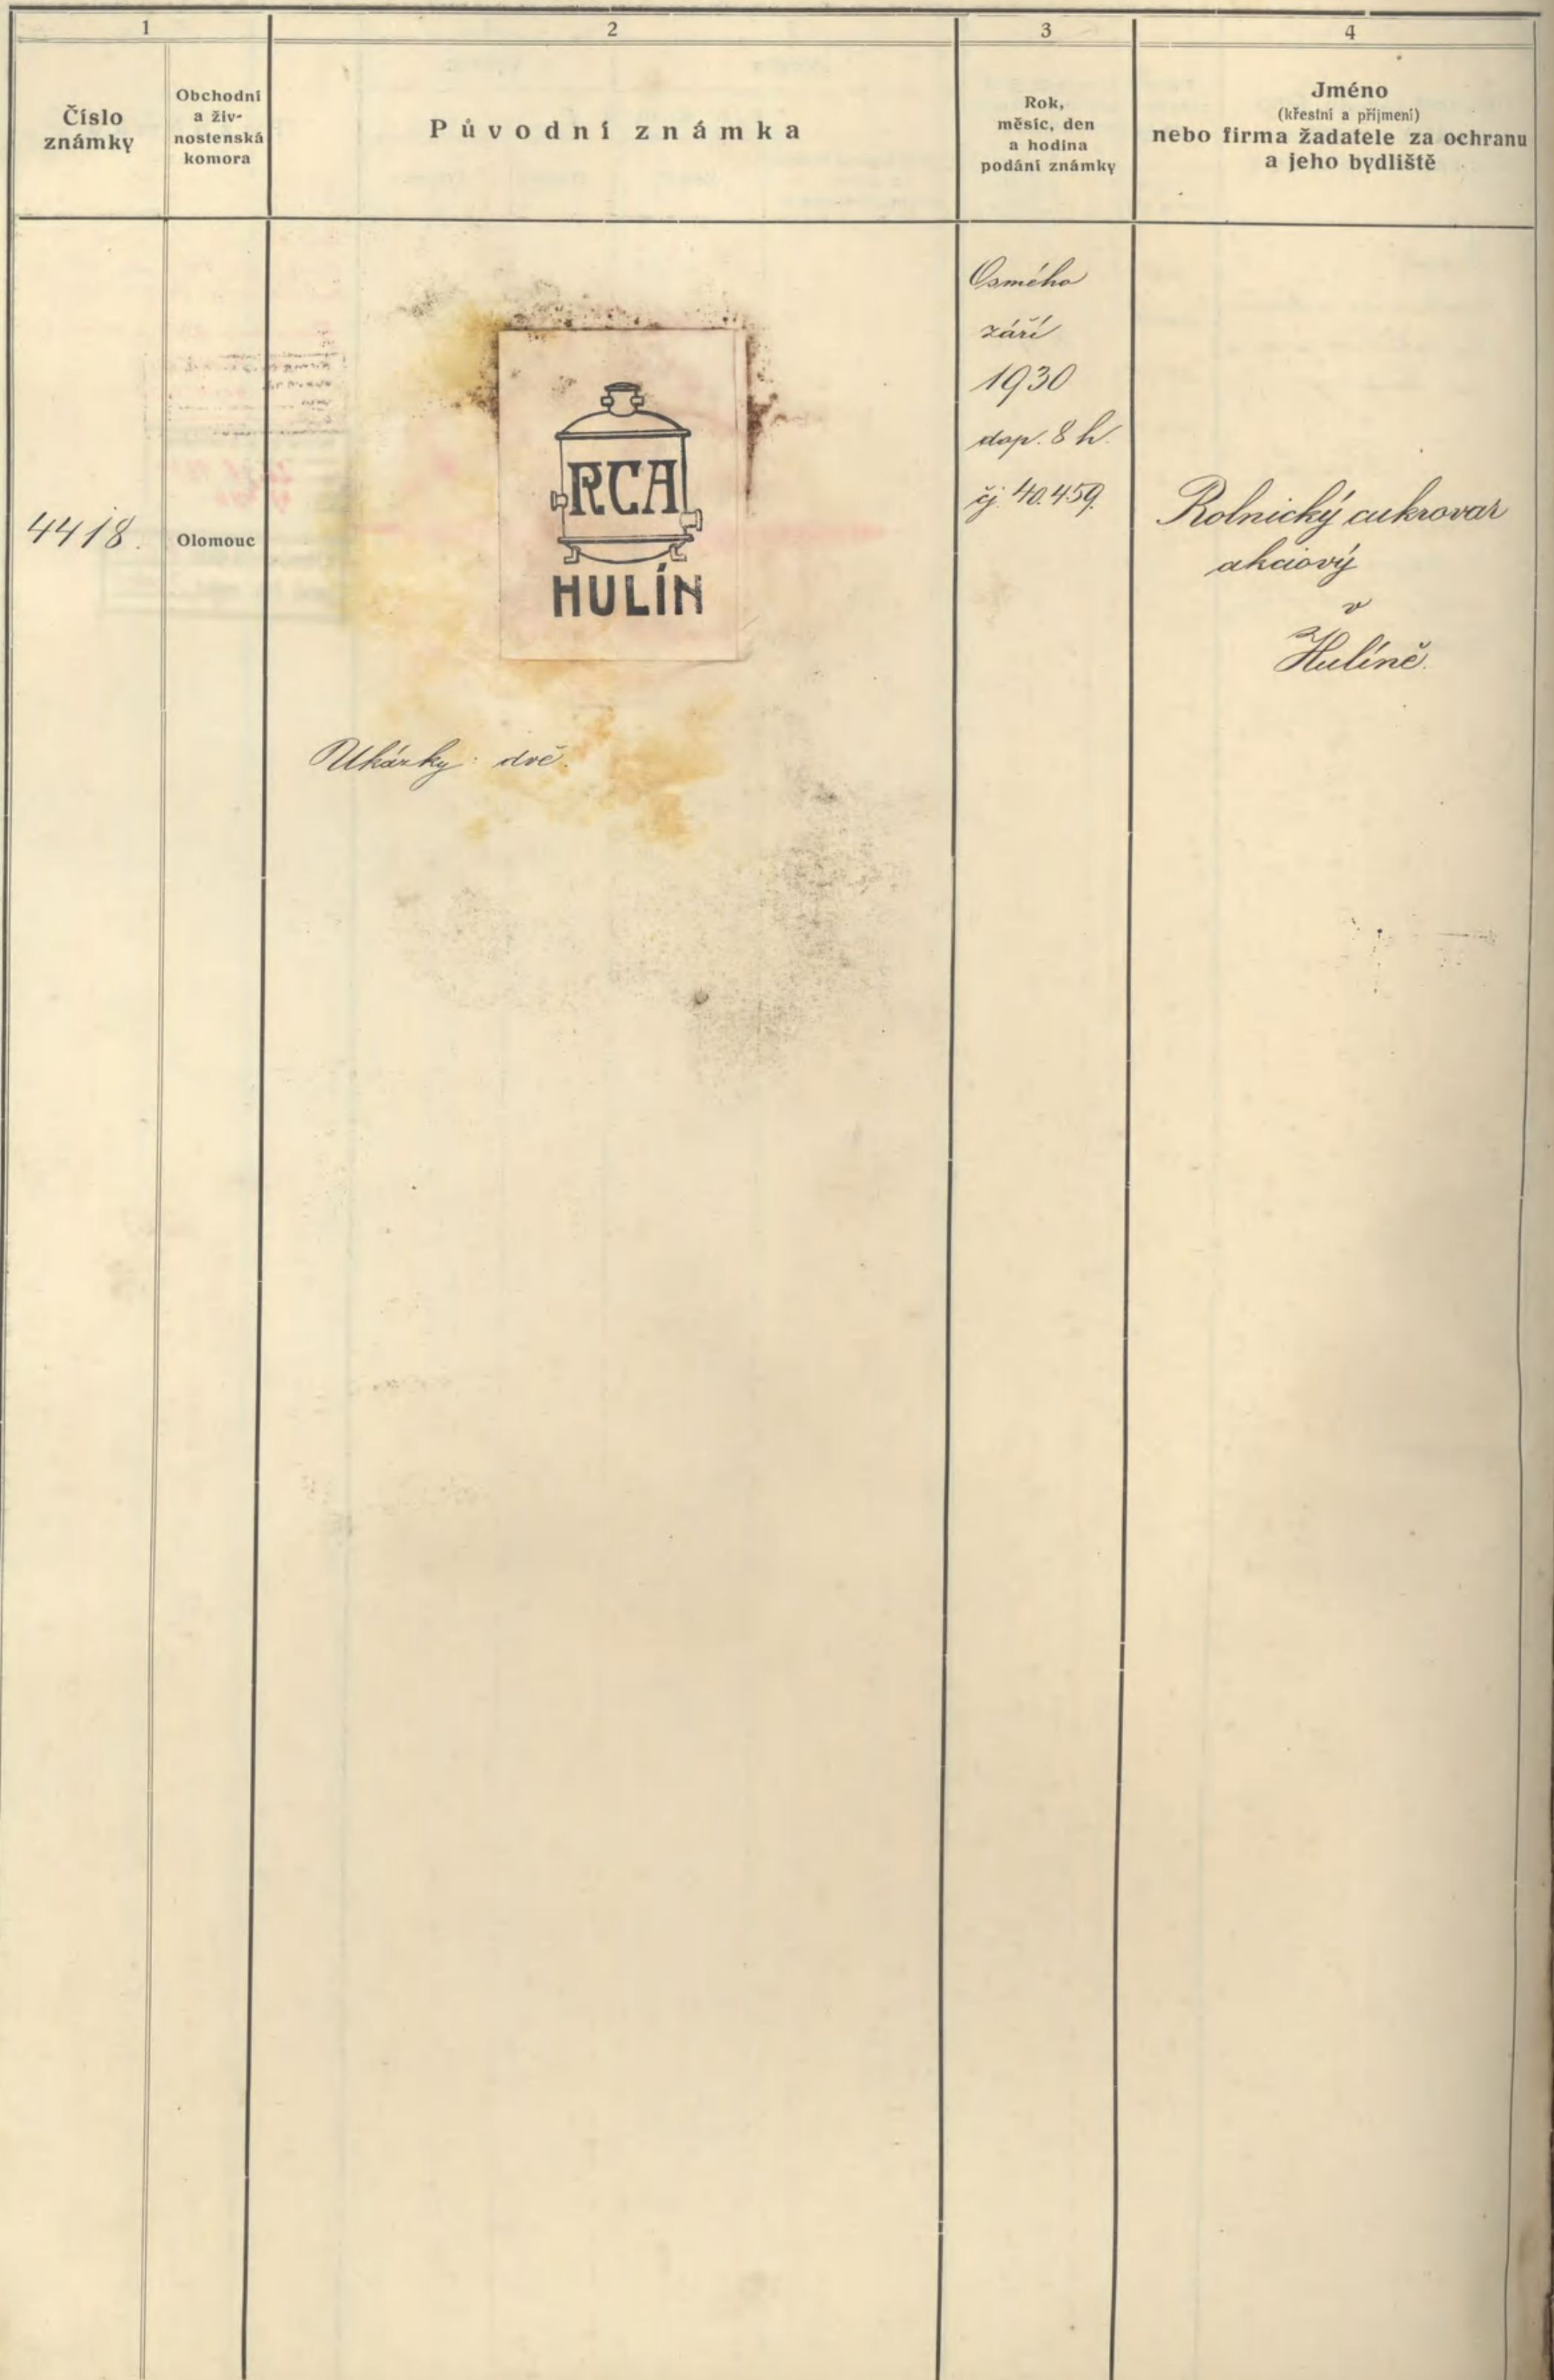 1
2
3
4
Číslo
známky
Obchodní
a živ-
nostenská
komora
Původní známka
Rok,
měsíc, den
a hodina
podání známky
Jméno
(křestní a příjmení)
nebo firma žadatele za ochranu
a jeho bydliště
4418.
Olomouc
RCA
HULÍN
Ukázky: dvě.
Osmého
září
1930
dop. 8 h.
čj. 40.459.
Rolnický cukrovar
akciový
v
Hulíně.